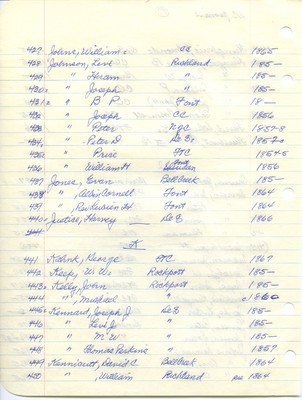 427. Johns, William CC 1865
428. Johnson, Levi Richland 185-
429. " Hiram " 185-
430. " Joseph " 185-
431. " B P. Font 18-
432. " Joseph CC 1856
433. " Peter NGC 1857-8
434. " Peter D De Er 1857
435. " Price FC 1854-5
436. " William H. 1856
437. Jones, Evan Bellcreek 185-
438. " , Albis Cornell Font 1864
439. " , Font 1864
440. Justice, Harvey De E 1866
K
441 , George FC 1867
442. Keep, W. W. Rockport 185-
443. Kelly, John Rockport 185-
444 " , Michael " a1860
445. Kennard, Joseph J De E 185-
446 " Levi J. " 185-
447 " M W " 185-
448 " Thomas Perkins " 1857
449 Kennicutt, David C. Bellcreek 1864
450 " , William Richland 1864